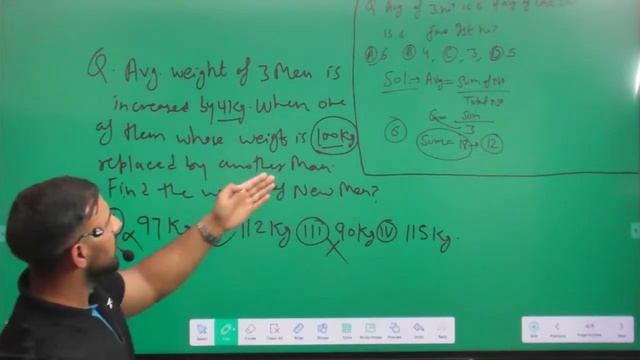 Q. Avg. weight of 3 Men is
increased by 4 kg. When one
of them whose weight is 100kg
replaced by another Man.
Find the of New Men?
97 Kg 112 Kg III 90 Kg IV 115 Kg.
Q Avg of 3 no is 6 avg of
is 6 find 1st no?
A 6 B 4, C, 3, D 5
Sol: → Avg = Sum of No
Total no
6 = Sum
3
6 Sum = 18 → 12